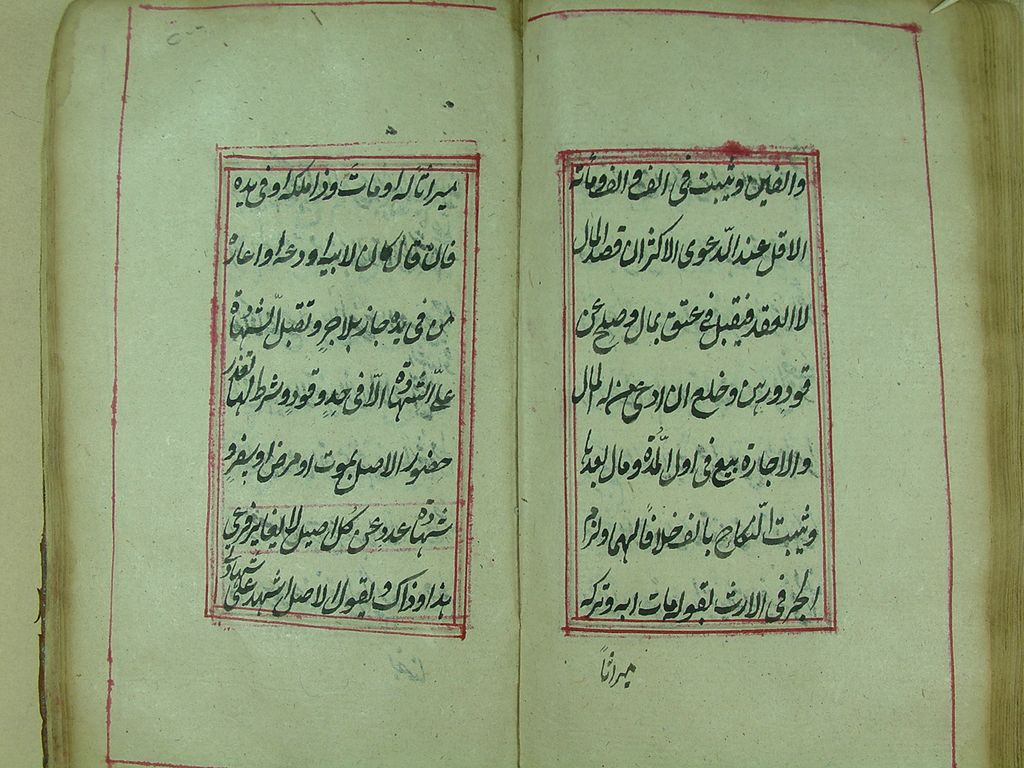 والفين وثبت في الف والف ومائة
الاقل عند الدعوى الاكثر ان قصد المال
لا العقد فيقبل في عتق بمال وصلح عن
قود ورهن وخلع ان ادعى من له المال
والاجارة بيع في اول المدة ومال بعدها
وثبت النكاح بالف خلافا لهما ولزم
الجر في الارث بقوله مات ابه وتركه
ميراثا
ميراثا له او مات وذا ملكه او في يده
فان قال كان لابيه اودعه او اعاره
من في يده جاز بلا جر وتقبل الشهادة
على الشهادة الا في حد وقود وشرط لها تعذر
حضور الاصل بموت او مرض او سفر و
شهادة عدد عن كل اصيل لا يغاير فرعي
هذا وذاك ويقول الاصل اشهد على شهادتي